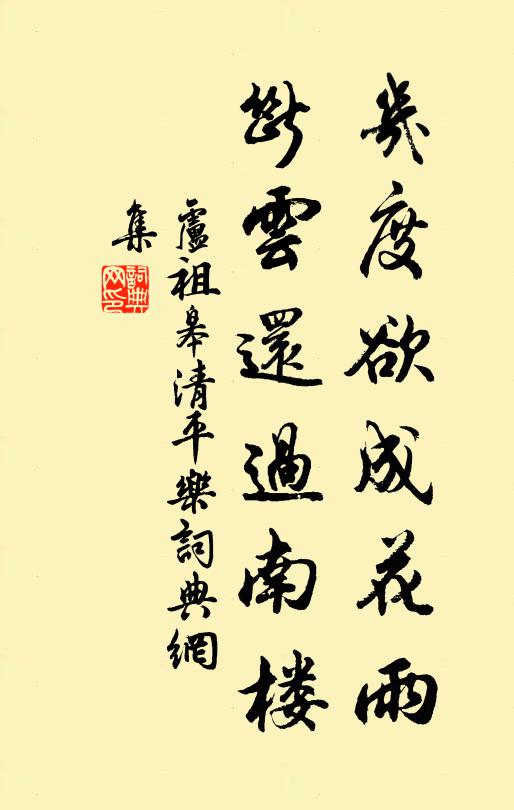 幾度欲成花雨
斷雲還過南樓
盧祖皋清平樂詞典網
集
詞典網印